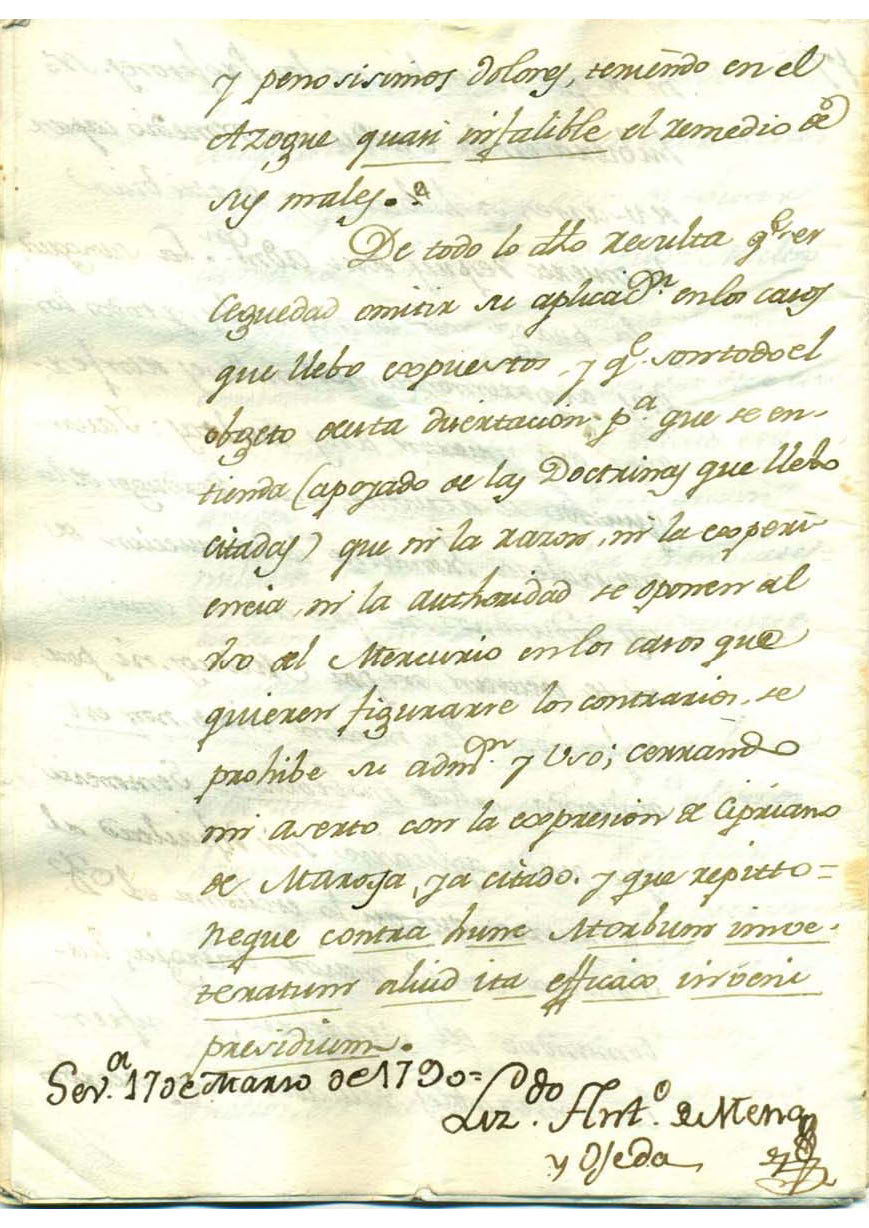 y penosisimos dolores, teniendo en el
Azogue quasi infalible el remedio de
sus males.a
De todo lo dho resulta qe. es
Ceguedad omitir su aplicacn. en los casos
que llebo expuestos, y qe. son todo el
objeto de esta disertacion pa. que se en-
tienda (apoyado de las Doctrinas que llebo
citadas) que ni la razon, ni la experi
encia, ni la authoridad se oponen al
Uso del Mercurio en los casos que
quieren figurarse los contrarios, se
prohibe su admn. y Uso; cerrando
mi aserto con la expresion de Cipriano
de Maroja, ya citado. y que repitto =
neque contra hunc Morbum inve-
teratum aliud ita efficax inveni
presidium.
Seva. 17 de Marzo de 1790=
Lizdo. Anto. de Mena
y Ojeda